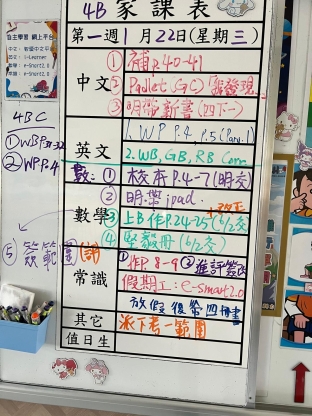 4B 家課表
自主學習 網上平台
第一週 1月22日(星期三)
4BC
① WB P.31-32
② WP P.4
中文
① 補 P.40-41
② Padlet (GC)
③ 明帶新書(四下一)
英文
1. WP P.4, P.5 (Part 1)
2. WB, GB, RB Corr.
數學
數: ① 校本 P.4-7 (明交)
② 明帶 ipad
③ 上B作 P.24-25 改正 (6/2交)
④ 堅毅冊 (6/2交)
⑤ 簽範圍
常識
① 作 P. 8-9 ② 進評簽改
假期工: e-smart2.0
放假後帶四冊書
其它
派下考一範圍
值日生